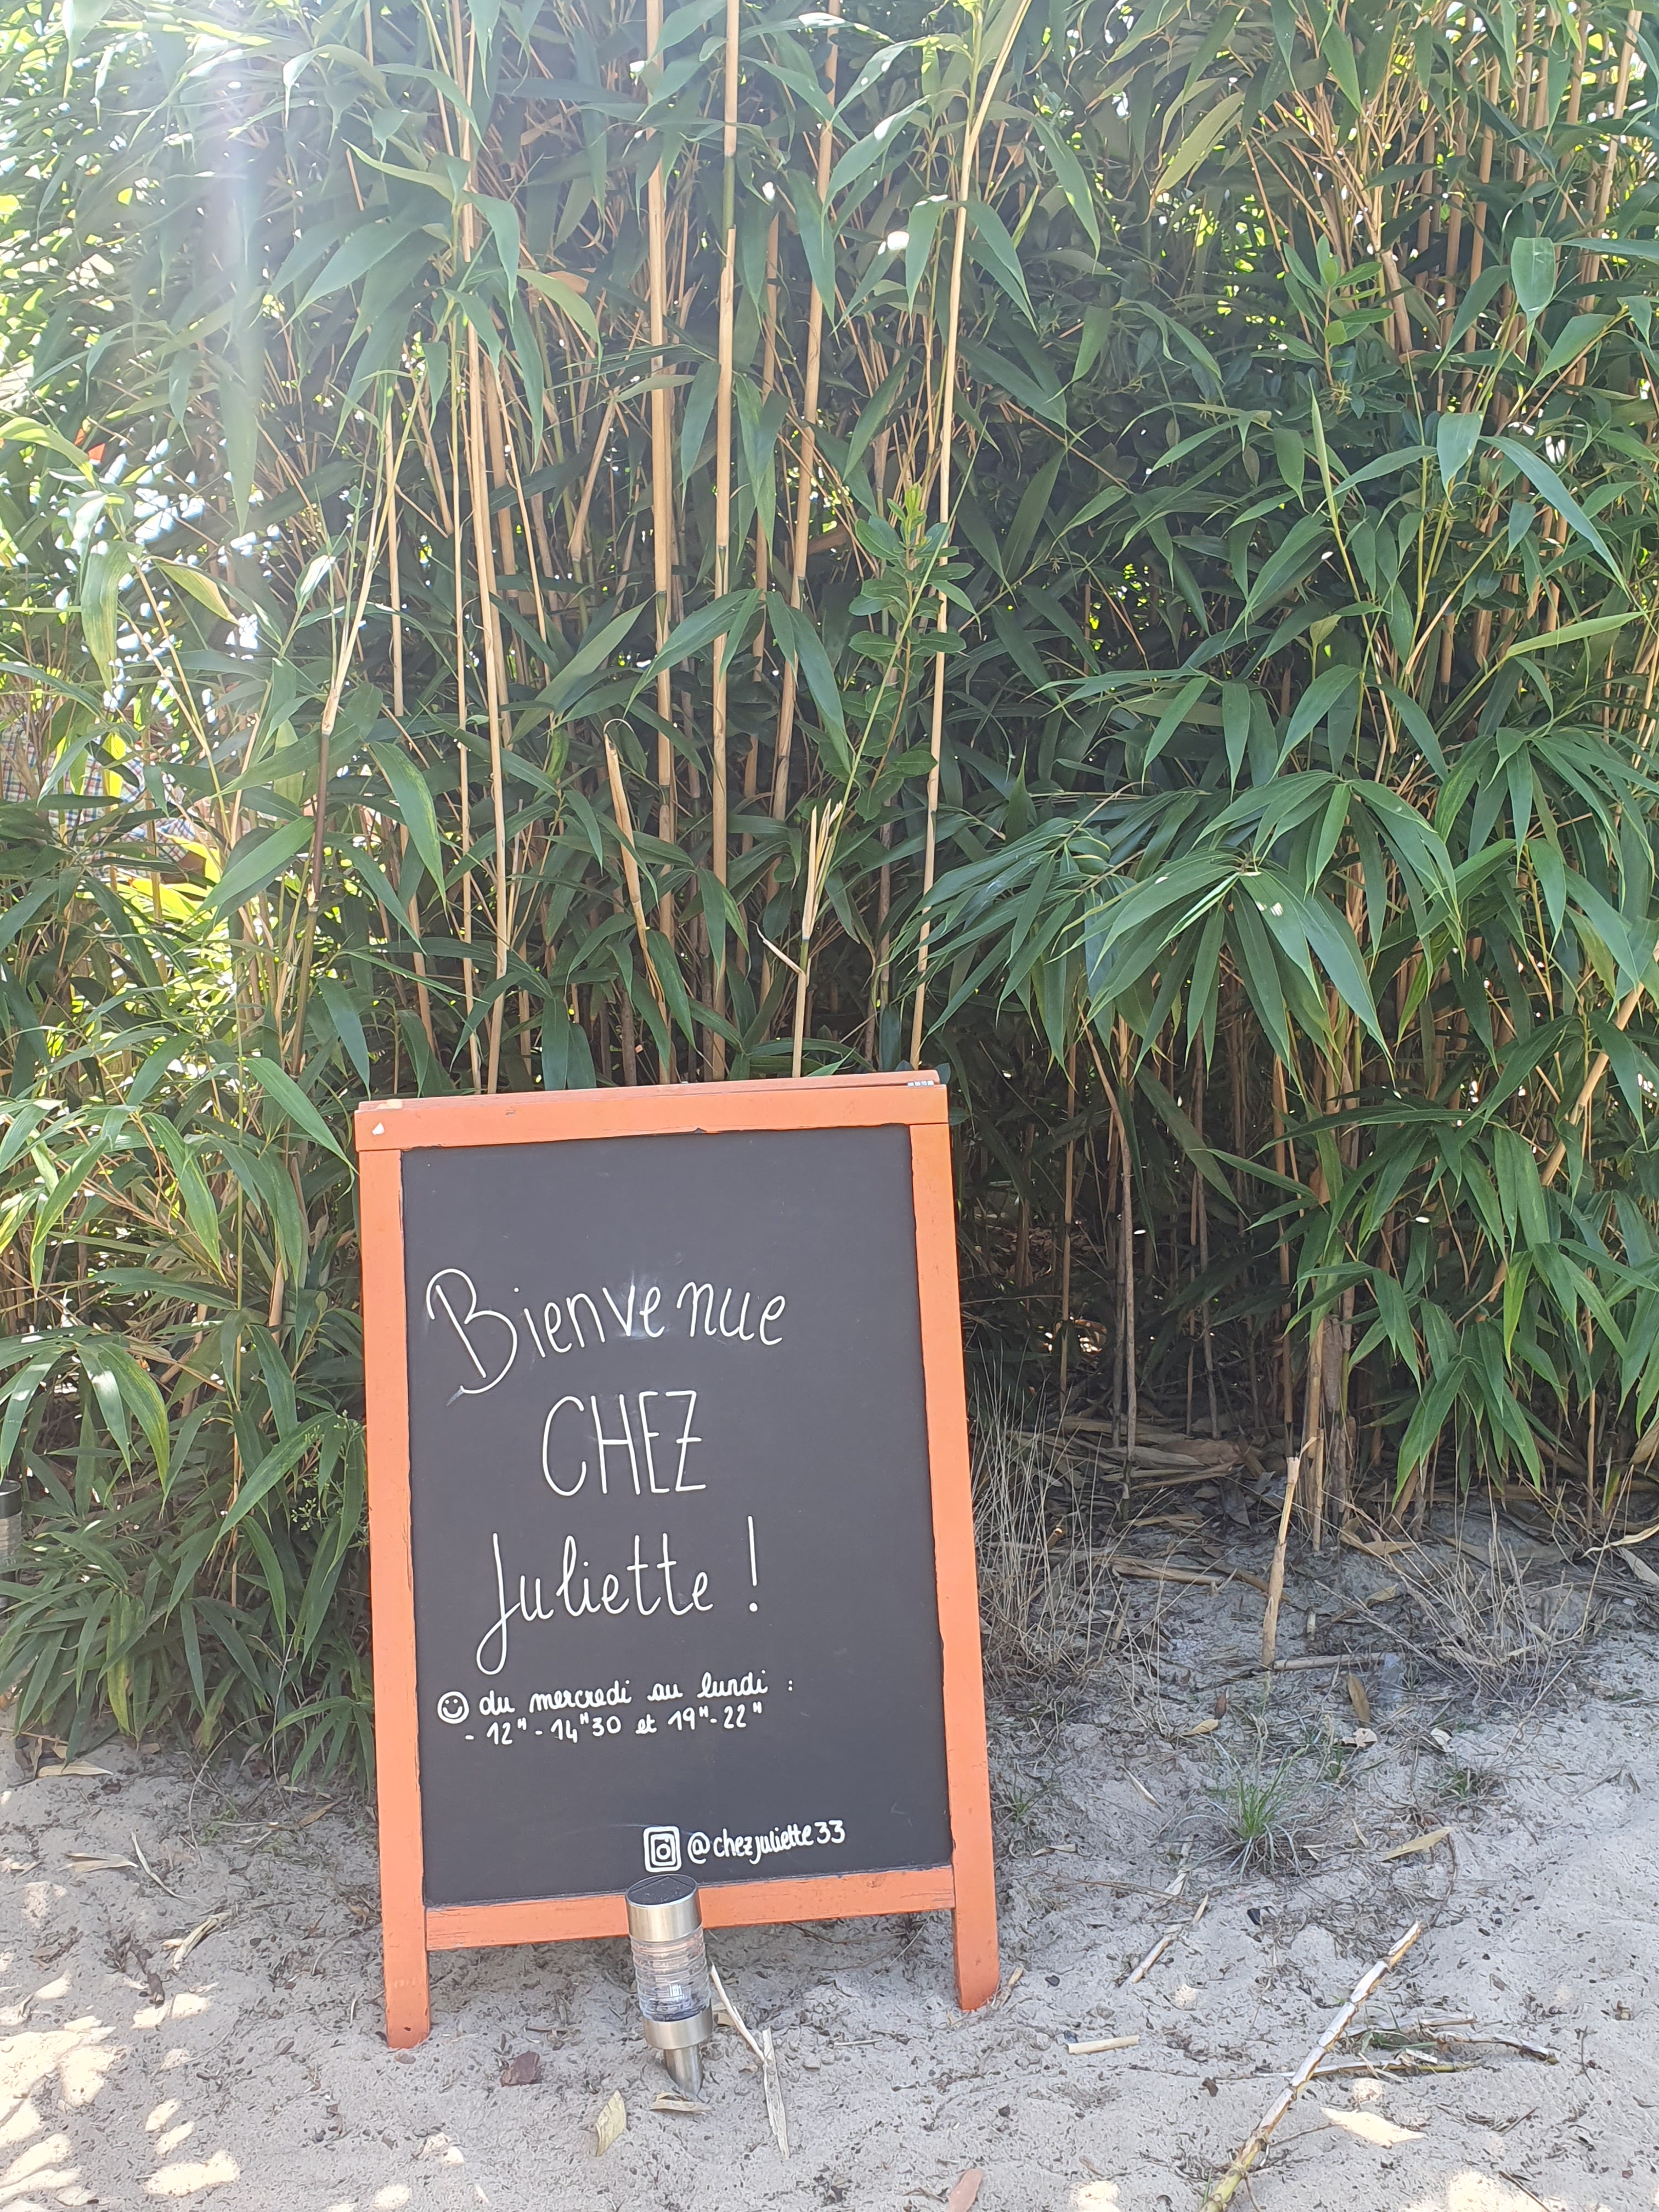 Bienvenue
CHEZ
Juliette !
du mercredi au lundi :
- 12H - 14H30 et 19H - 22H
@chezjuliette33